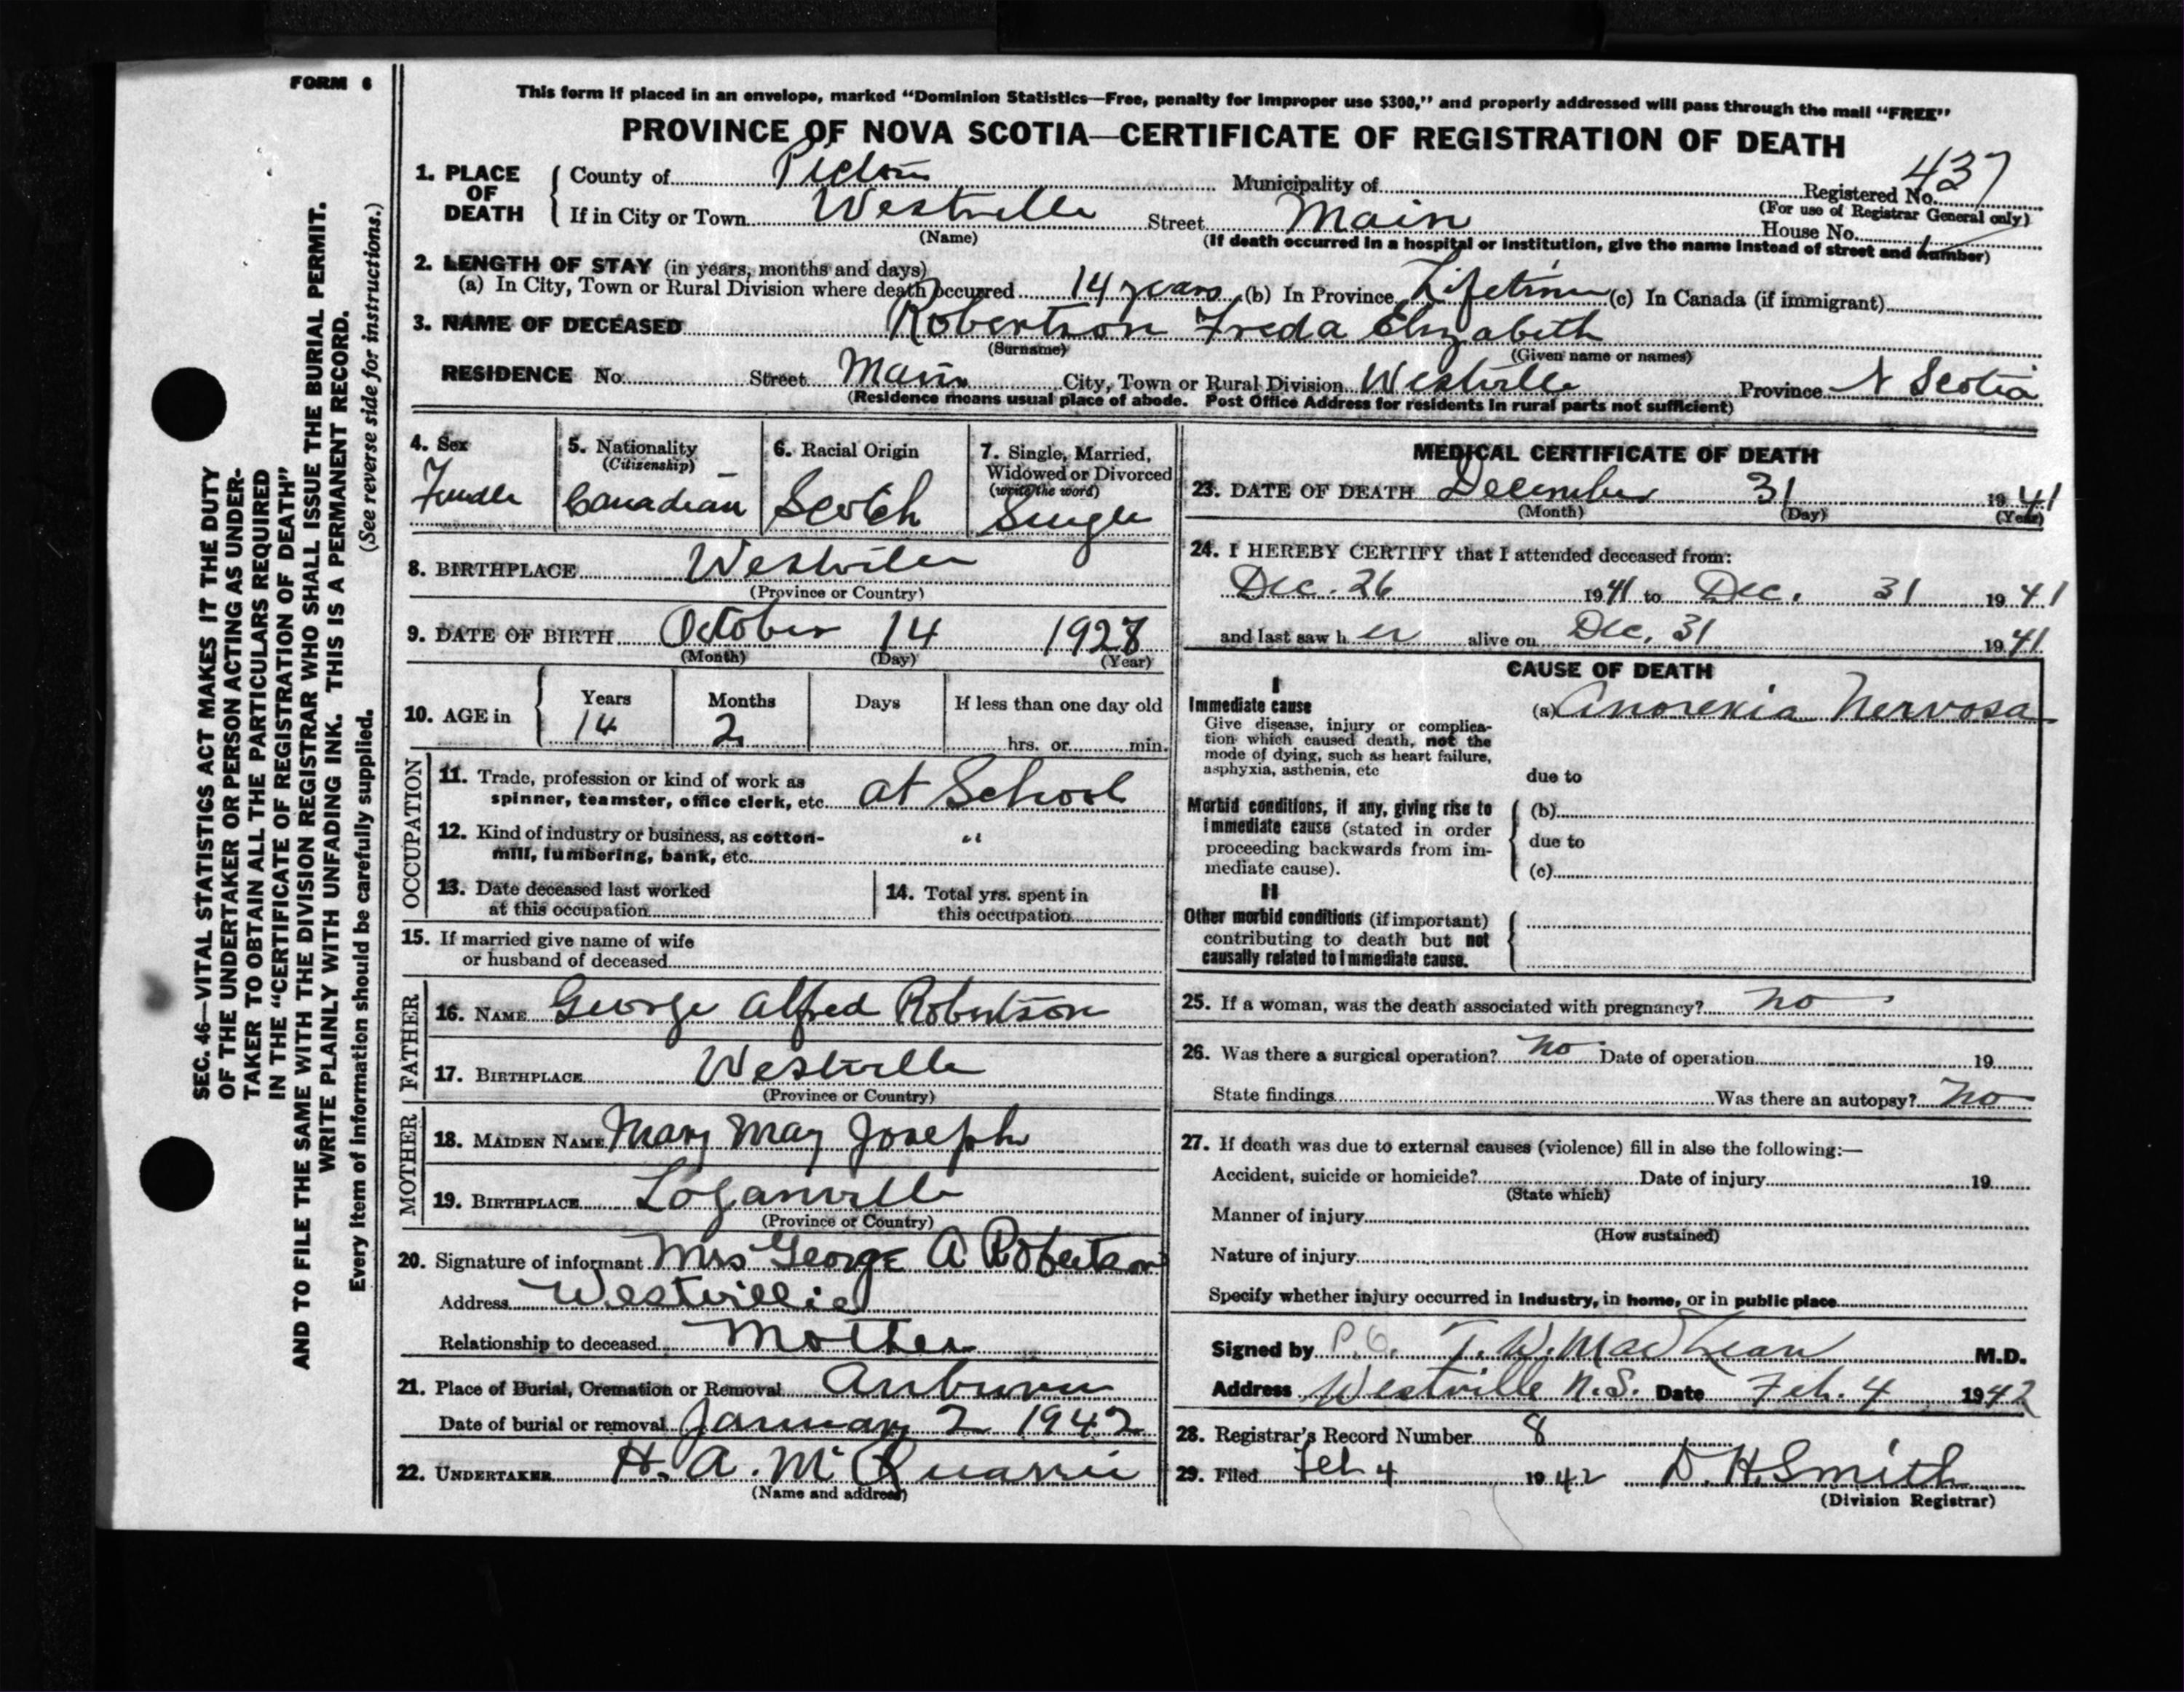 FORM 6
This form if placed in an envelope, marked "Dominion Statistics—Free, penalty for improper use $300," and properly addressed will pass through the mail "FREE"
PROVINCE OF NOVA SCOTIA—CERTIFICATE OF REGISTRATION OF DEATH
1. PLACE OF DEATH
County of Pictou Municipality of Registered No. 437
(For use of Registrar General only)
If in City or Town Westville Street Main House No.
(Name) (If death occurred in a hospital or institution, give the name instead of street and number)
2. LENGTH OF STAY (in years, months and days)
(a) In City, Town or Rural Division where death occurred 14 years (b) In Province Lifetime (c) In Canada (if immigrant)
3. NAME OF DECEASED Robertson Freda Elizabeth
(Surname) (Given name or names)
RESIDENCE No. Street Main City, Town or Rural Division Westville Province N Scotia
(Residence means usual place of abode. Post Office Address for residents in rural parts not sufficient)
4. Sex
Female
5. Nationality
(Citizenship)
Canadian
6. Racial Origin
Scotch
7. Single, Married,
Widowed or Divorced
(write the word)
Single
8. BIRTHPLACE Westville
(Province or Country)
9. DATE OF BIRTH October 14 1927
(Month) (Day) (Year)
10. AGE in
Years Months Days If less than one day old
14 2 hrs. or min.
OCCUPATION
11. Trade, profession or kind of work as
spinner, teamster, office clerk, etc. at School
12. Kind of industry or business, as cotton-
mill, lumbering, bank, etc. "
13. Date deceased last worked
at this occupation
14. Total yrs. spent in
this occupation
15. If married give name of wife
or husband of deceased
FATHER
16. NAME George Alfred Robertson
17. BIRTHPLACE Westville
(Province or Country)
MOTHER
18. MAIDEN NAME Mary May Joseph
19. BIRTHPLACE Loganville
(Province or Country)
20. Signature of informant Mrs George A Robertson
Address Westville
Relationship to deceased Mother
21. Place of Burial, Cremation or Removal Auburn
Date of burial or removal January 2 1942
22. UNDERTAKER H. A. McQuarrie
(Name and address)
MEDICAL CERTIFICATE OF DEATH
23. DATE OF DEATH December 31 1941
(Month) (Day) (Year)
24. I HEREBY CERTIFY that I attended deceased from:
Dec. 26 1941 to Dec. 31 1941
and last saw her alive on Dec. 31 1941
CAUSE OF DEATH
I
Immediate cause
Give disease, injury or complica-
tion which caused death, not the
mode of dying, such as heart failure,
asphyxia, asthenia, etc
(a) Anorexia Nervosa
due to
Morbid conditions, if any, giving rise to
immediate cause (stated in order
proceeding backwards from im-
mediate cause).
(b)
due to
(c)
II
Other morbid conditions (if important)
contributing to death but not
causally related to immediate cause.
25. If a woman, was the death associated with pregnancy? no
26. Was there a surgical operation? no Date of operation 19
State findings Was there an autopsy? no
27. If death was due to external causes (violence) fill in also the following:—
Accident, suicide or homicide? Date of injury 19
(State which)
Manner of injury
(How sustained)
Nature of injury
Specify whether injury occurred in industry, in home, or in public place
Signed by P.O. T. W. MacLean M.D.
Address Westville N.S. Date Feb. 4 1942
28. Registrar's Record Number 8
29. Filed Feb 4 1942 D. H. Smith
(Division Registrar)
SEC. 46—VITAL STATISTICS ACT MAKES IT THE DUTY
OF THE UNDERTAKER OR PERSON ACTING AS UNDER-
TAKER TO OBTAIN ALL THE PARTICULARS REQUIRED
IN THE "CERTIFICATE OF REGISTRATION OF DEATH"
AND TO FILE THE SAME WITH THE DIVISION REGISTRAR WHO SHALL ISSUE THE BURIAL PERMIT.
WRITE PLAINLY WITH UNFADING INK. THIS IS A PERMANENT RECORD.
Every item of information should be carefully supplied. (See reverse side for instructions.)